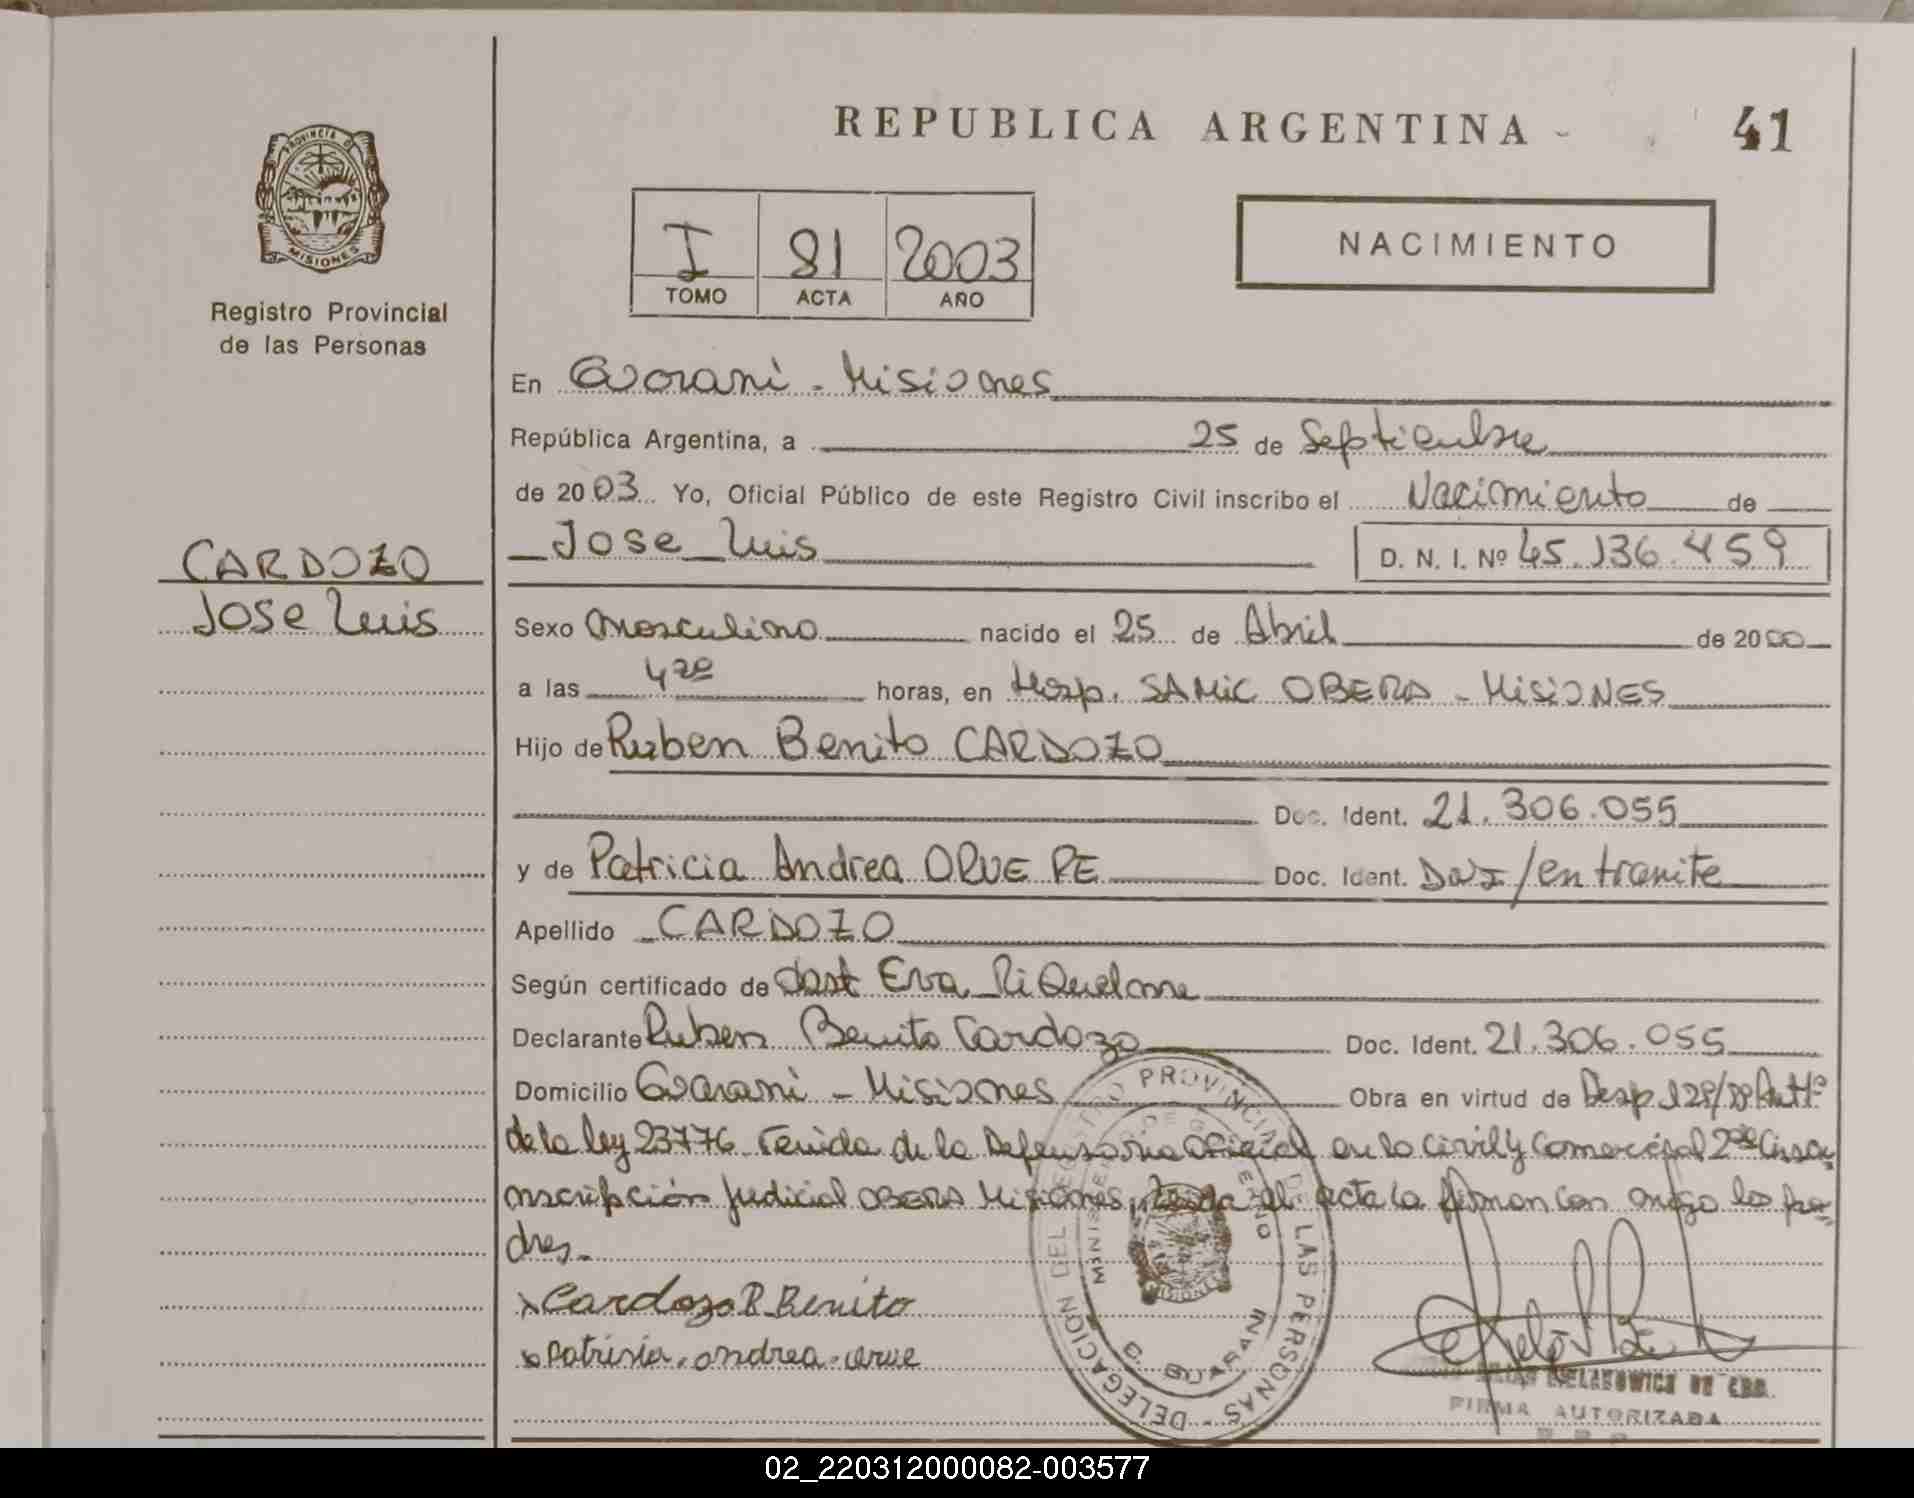 REPUBLICA ARGENTINA
41
PROVINCIA D
MISIONES
Registro Provincial
de las Personas
I 81 2003
TOMO ACTA AÑO
NACIMIENTO
En Guarani - Misiones
República Argentina, a 25 de Septiembre
de 2003 Yo, Oficial Público de este Registro Civil inscribo el Nacimiento de
Jose Luis D. N. I. Nº 45.136.459
CARDOZO
Jose Luis
Sexo Masculino nacido el 25 de Abril de 2000
a las 4 20 horas, en Hosp. SAMIC OBERA - MISIONES
Hijo de Ruben Benito CARDOZO
Doc. Ident. 21.306.055
y de Patricia Andrea ORUE RE Doc. Ident. DNI/en tramite
Apellido CARDOZO
Según certificado de Obst Eva Riquelme
Declarante Ruben Benito Cardozo Doc. Ident. 21.306.055
Domicilio Guarani - Misiones Obra en virtud de Desp 128/
de la ley 23776 venida de la Defensoria Oficial en lo Civil y Comercial 2da Circu
nscripción Judicial OBERA Misiones, leida el acta la firman con migo los pa-
dres.-
x Cardozo R Benito
x Patrisia. andrea. orue
DELEGACION DEL REGISTRO PROVINCIAL DE LAS PERSONAS -
MINISTERIO DE GOBIERNO
MISIONES
G. GUARANI
FIRMA AUTORIZADA
02_220312000082-003577